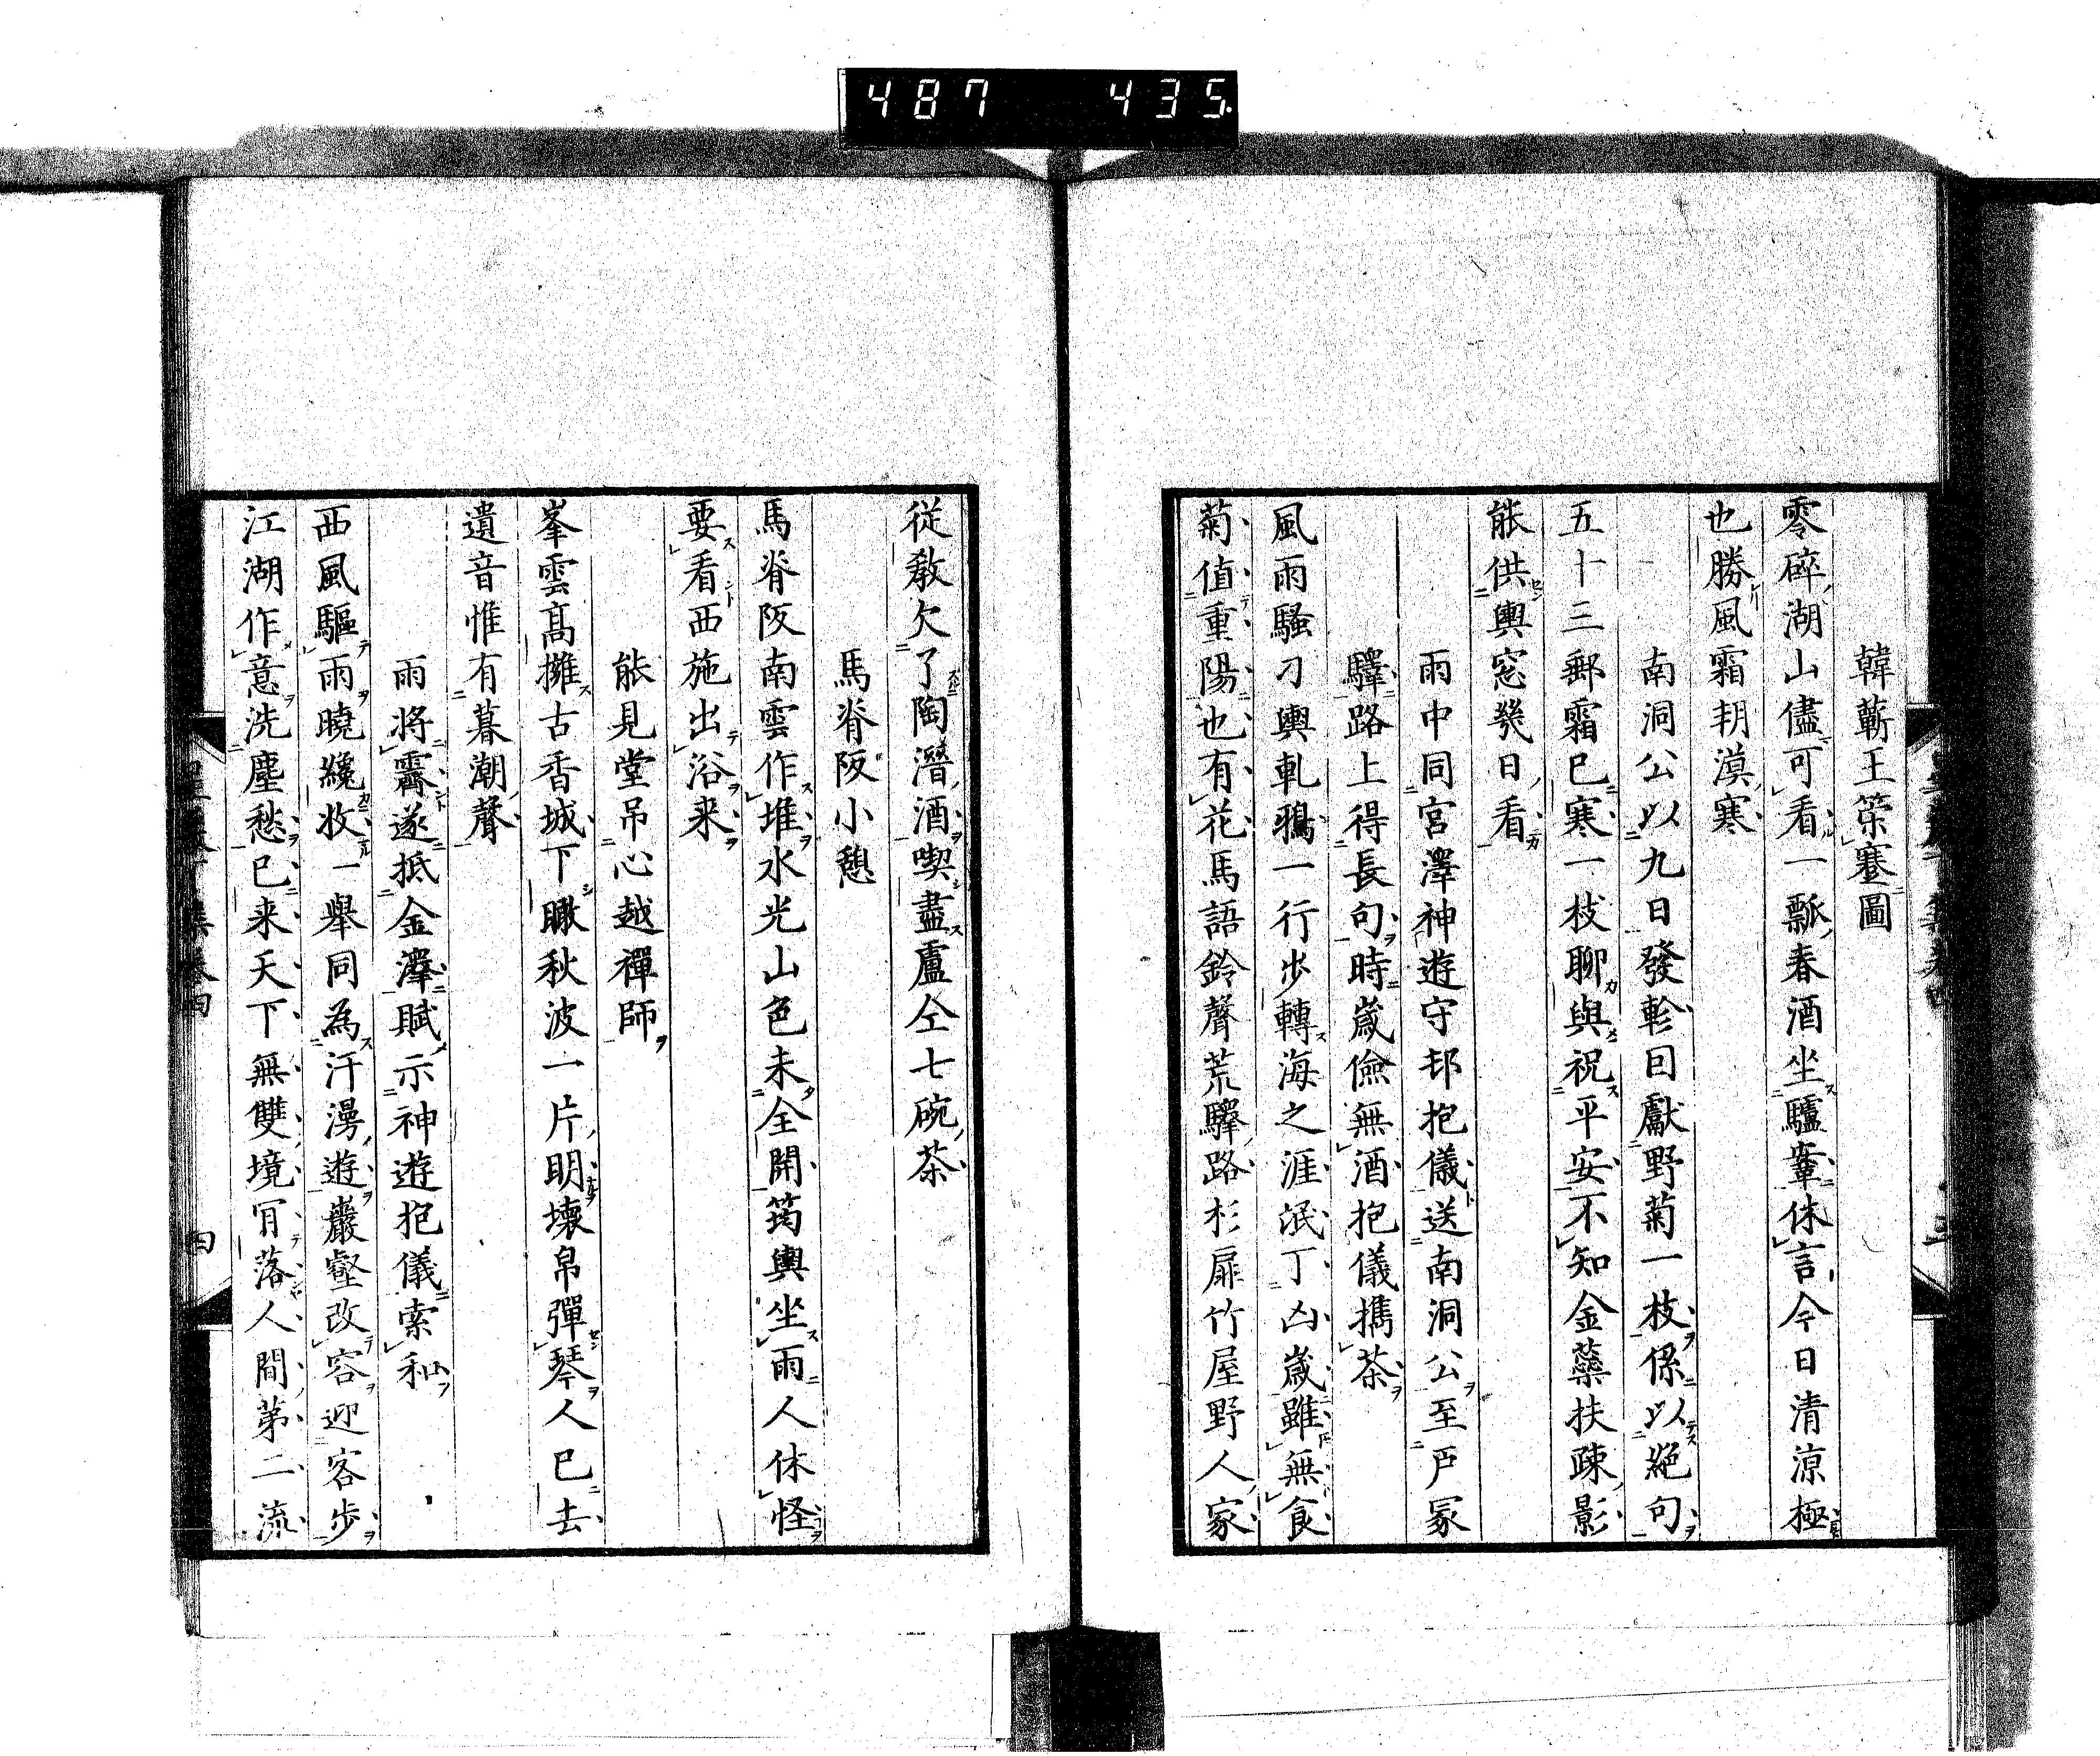 487 435
韓蘄王策蹇圖
零碎湖山儘可看一瓢春酒坐驢鞌休言今日清涼極
也勝風霜朔漠寒
南洞公以九日發軫因獻野菊一枝係以絕句
五十三郵霜已寒一枝聊與祝平安不知金蘂扶疎影
能供輿窓幾日看
雨中同宮澤神遊守邨抱儀送南洞公至戸冢
驛路上得長句時歲儉無酒抱儀攜茶
風雨騷刁輿軋鴉一行步轉海之涯泯丁凶歲雖無食
菊值重陽也有花馬語鈴聲荒驛路杉扉竹屋野人家
從教欠了陶潛酒喫盡盧仝七碗茶
馬脊阪小憩
馬脊阪南雲作堆水光山色未全開筠輿坐雨人休怪
要看西施出浴来
能見堂吊心越禪師
峯雲髙擁古香城下瞰秋波一片明壞帛彈琴人已去
遺音惟有暮潮聲
雨將霽遂抵金澤賦示神遊抱儀索和
西風驅雨曉纔收一舉同為汗漫遊巖壑改容迎客步
江湖作意洗塵愁已来天下無雙境肎落人間第二流
四